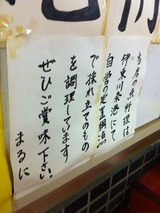 当店の魚料理は
伊東川奈港にて
自営の定置網漁
で採れ立てのもの
を調理しています
ぜひご賞味下さい
まるに